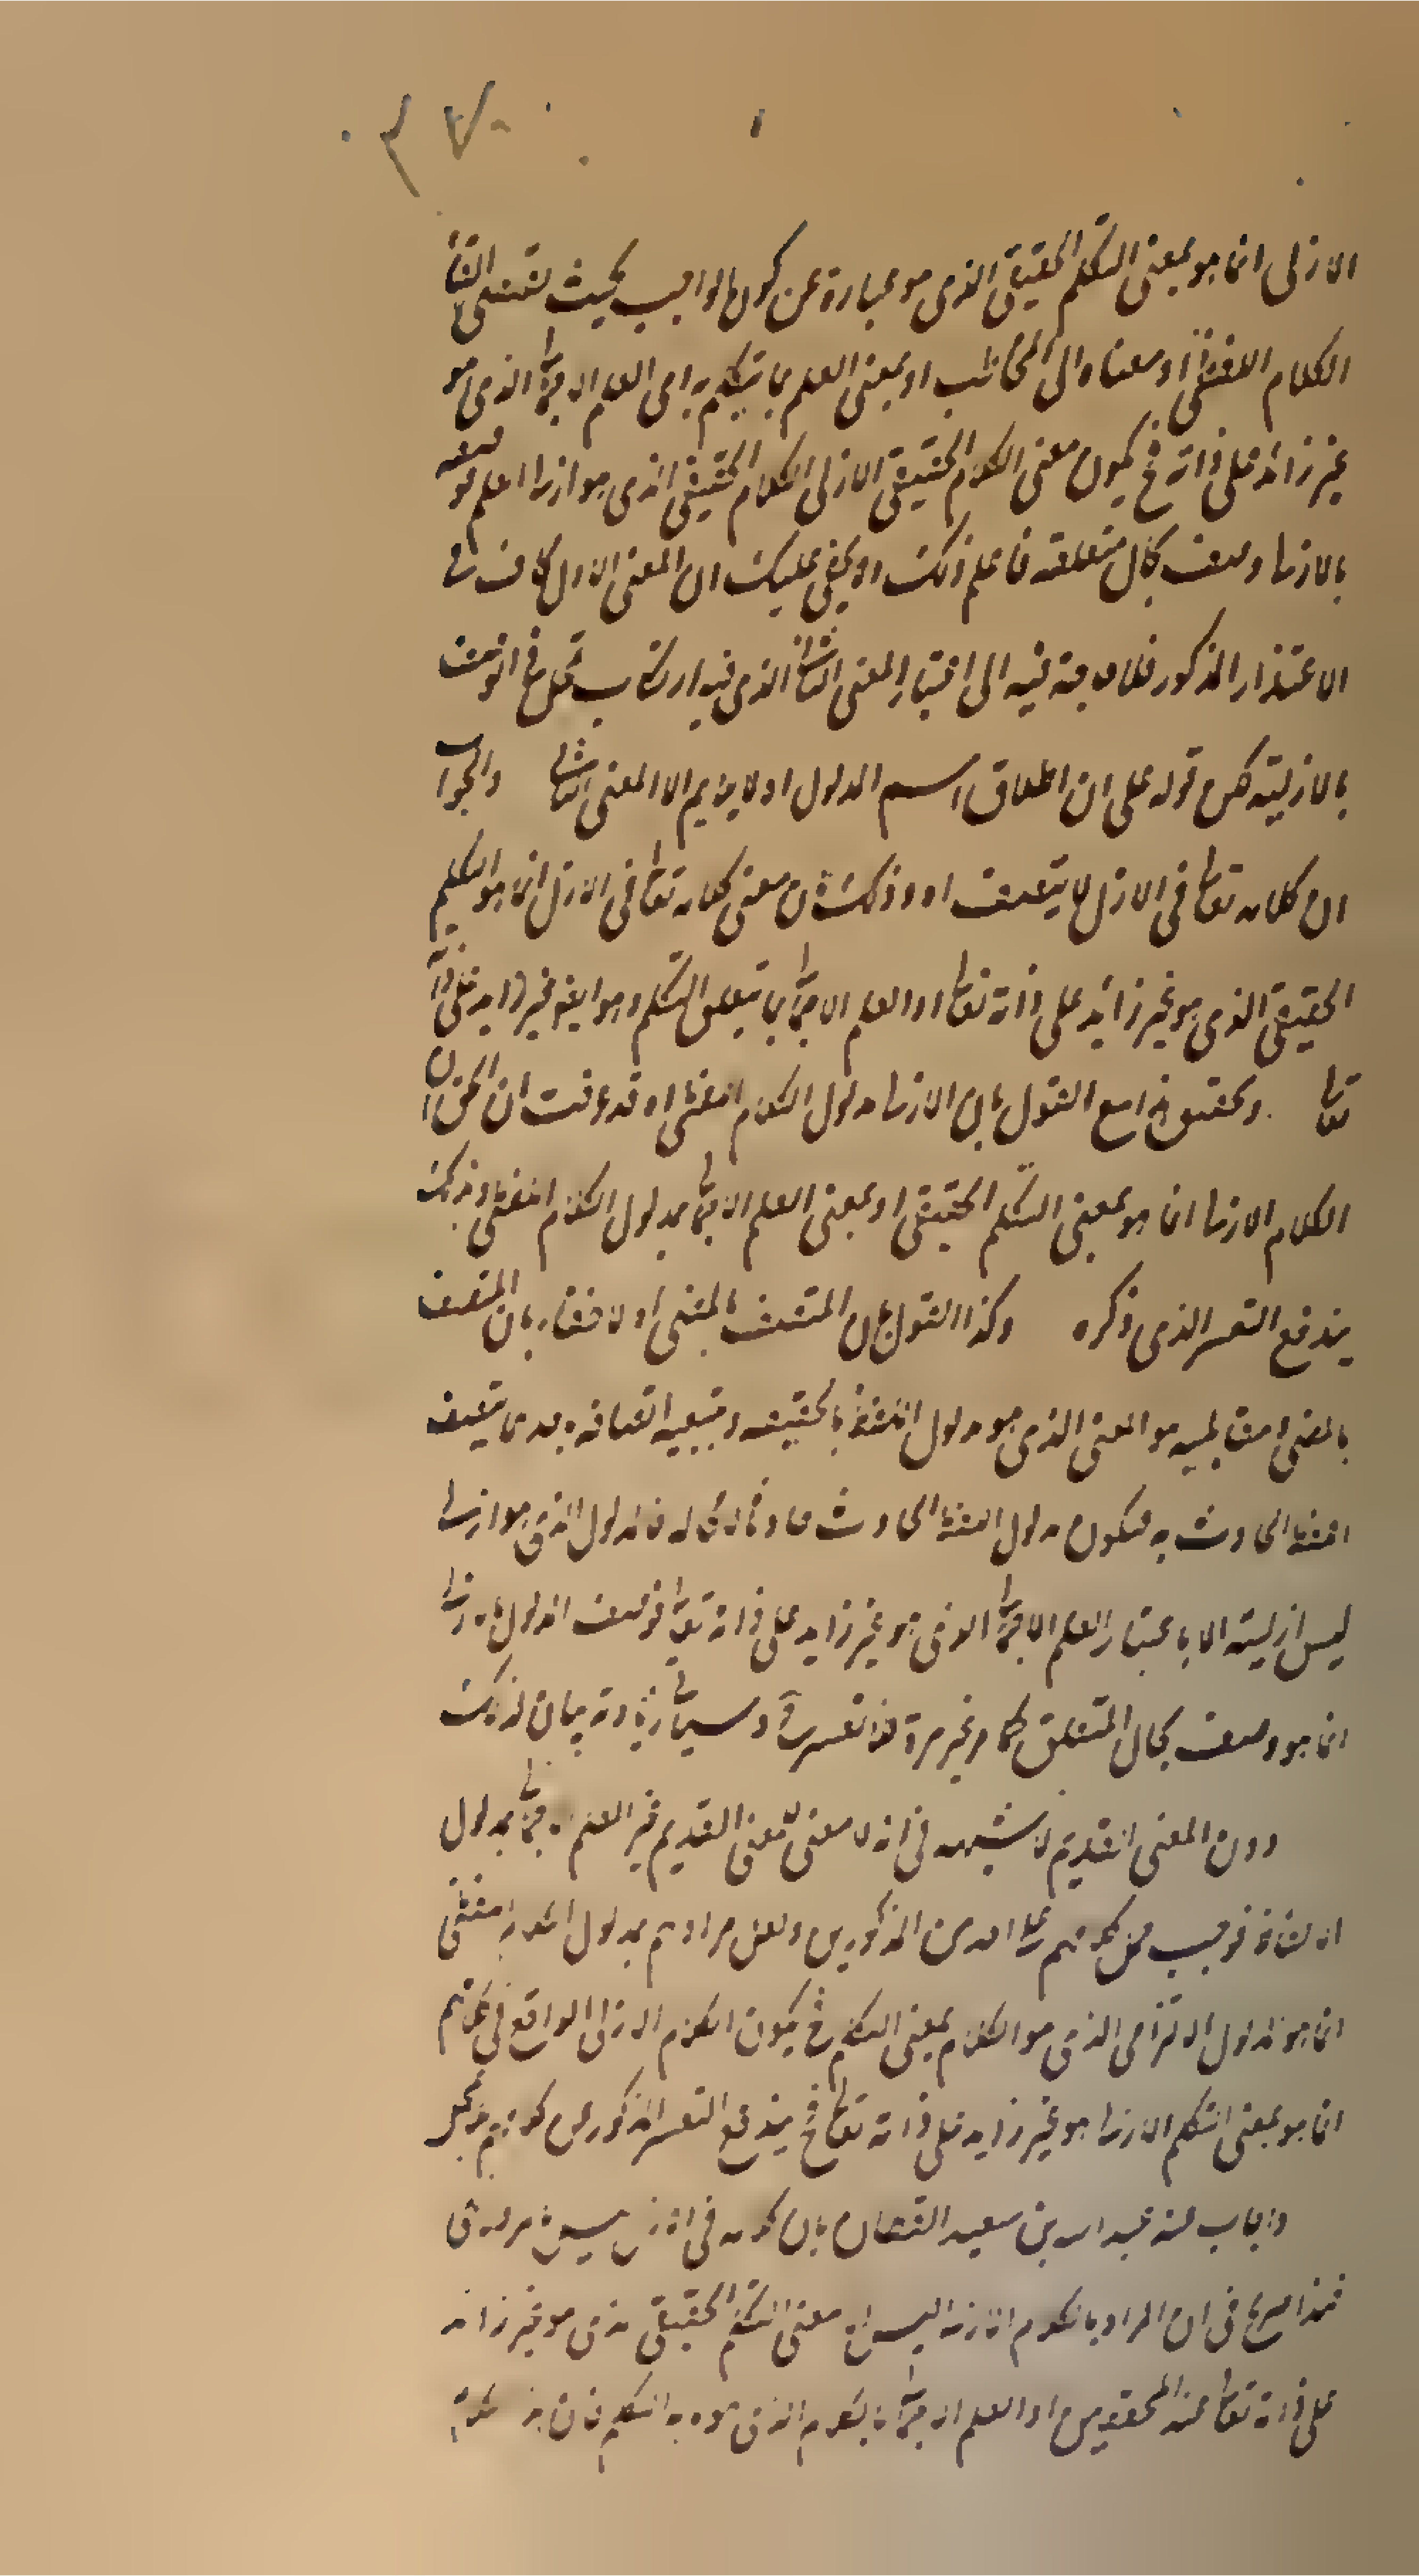 الازلى انما هو بمعنى التكلم الحقيقى الذى هو عبارة عن كون الواجب بحيث يقتضى القاء
الكلام اللفظى او معناه الى المخاطب او بمعنى العلم بما يتكلم به اى العلم الاجمالى الذى هو
غير زائد على ذاته فح يكون معنى الكلام الحقيقى الازلى الكلام الحقيقى الذى هو ازلى العلم فوصفه
بالازلى وصف بحال متعلقه فاعلم ذلك ولا يخفى عليك ان المعنى الاول كاف فى
الاعتذار المذكور فلا حاجة فيه الى اختيار المعنى الثانى الذى فيه ارتكاب تمحل فى التوصيف
بالازلية كمن قوله على ان اطلاق اسم المدلول اه لا يلايم الا المعنى الثانى والجواب
ان كلامه تعالى فى الازل لا يتصف اه وذلك لان معنى كلامه تعالى فى الازل انما هو التكلم
الحقيقى الذى هو غير زائد على ذاته تعالى او العلم الاجمالى بما يتعلق التكلم وهو ايضا غير زايد على ذاته
تعالى وتحقيق هذا مع القول بان الازلى مدلول الكلام اللفظى اه قد عرفت ان الحق ان
الكلام الازلى انما هو بمعنى التكلم الحقيقى او بمعنى العلم الاجمالى بمدلول الكلام اللفظى وبذلك
يندفع التعسر الذى ذكره وكذا القول بان المتصف بالمضى اه لا خفاء بان المتصف
بالمضى ومقابليه هو المعنى الذى هو مدلول اللفظ بالحقيقة وبتبعية اتصافه بعد ما يتصف
اللفظ الحادث به فيكون مدلول اللفظ الحادث حادثا لا محالة فالمدلول الذى هو ازلى
ليس ازليته الا باعتبار العلم الاجمالى الذى هو غير زايد على ذاته تعالى فوصف المدلول بالازلى
انما هو وصف بحال المتعلق كما مر غير مرة فلا تعسر وسيأتى زيادة بيان لذلك
دون المعنى القديم لا شبهه فى انه لا معنى لمعنى القديم غير العلم الاجمالى بمدلول
الالفاظ فوجب حمل كلامهم على احد من المذكورين ولعل مرادهم بمدلول الكلام اللفظى
انما هو المدلول الالتزامى الذى هو الكلام بمعنى التكلم فح يكون الكلام الازلى الواقع فى كلامهم
انما هو بمعنى التكلم الازلى هو غير زايد على ذاته تعالى فح يندفع التعسر المذكور من كلامهم
واجاب عنه عبد الله بن سعيد القطان بان كلامه فى الازل ليس
فهذا صريح فى ان المراد بالكلام الازلى ليس الا معنى التكلم الحقيقى الذى هو غير زائد
على ذاته تعالى عند المحققين او العلم الاجمالى بالكلام الذى هو به التكلم فان